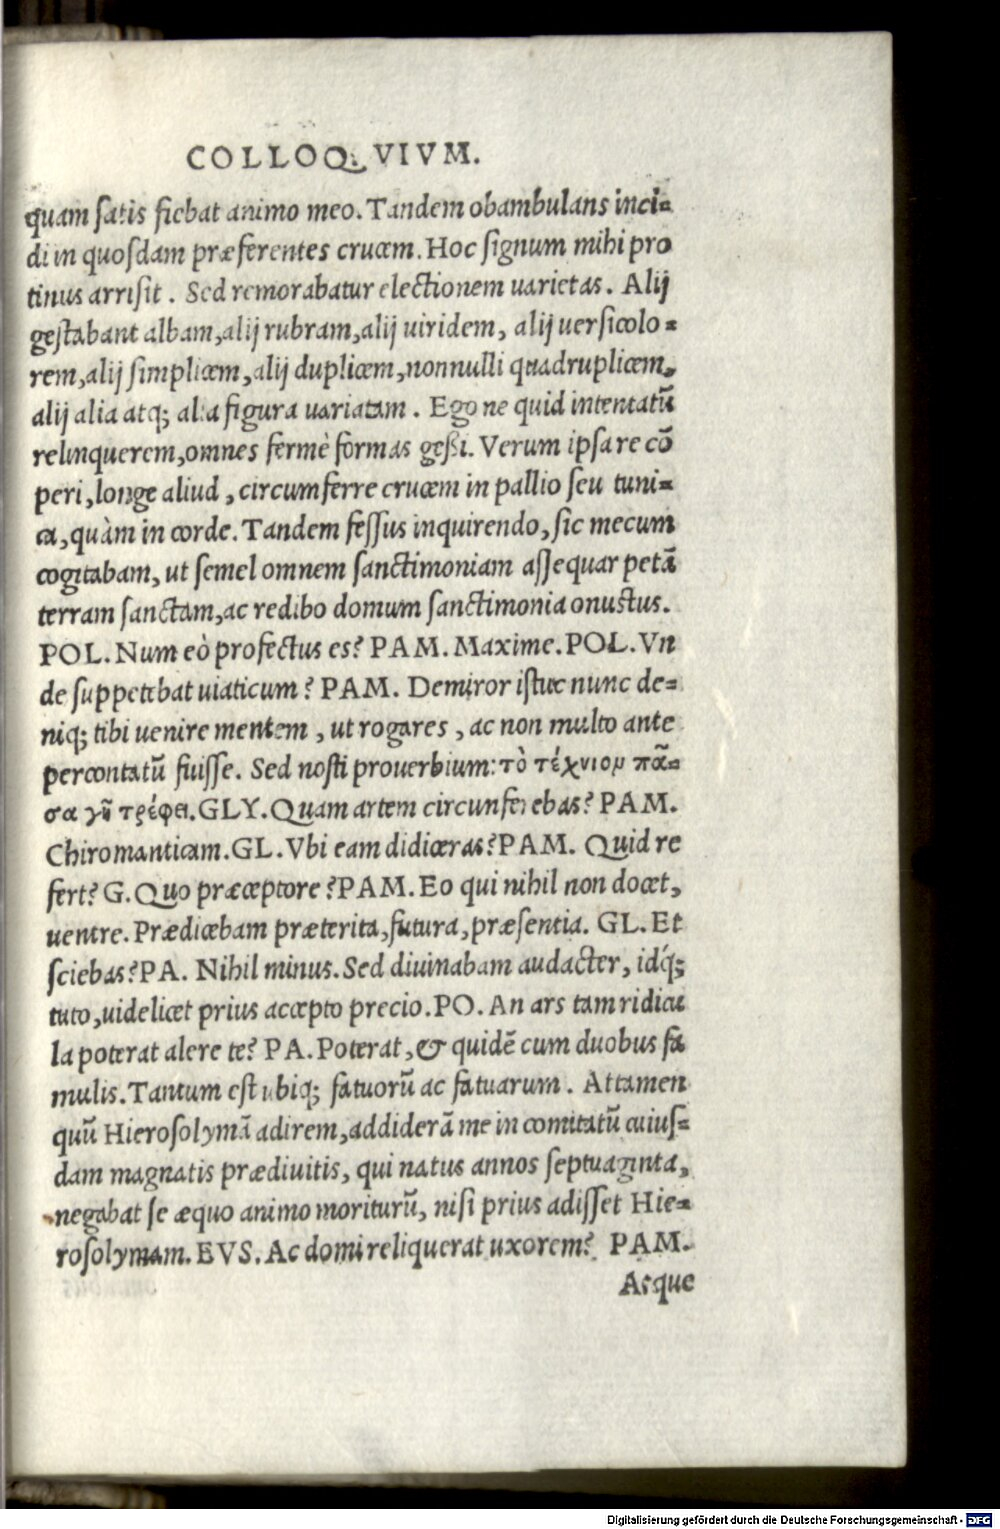 COLLOQVIVM.
quam satis fiebat animo meo. Tandem obambulans inci-
di in quosdam præferentes crucem. Hoc signum mihi pro
tinus arrisit. Sed remorabatur electionem uarietas. Alij
gestabant albam, alij rubram, alij uiridem, alij uersicolo-
rem, alij simplicem, alij duplicem, nonnulli quadruplicem,
alij alia atq; alia figura uariatam. Ego ne quid intentatũ
relinquerem, omnes fermè formas gessi. Verum ipsa re cõ
peri, longe aliud, circumferre crucem in pallio seu tuni-
ca, quàm in corde. Tandem fessus inquirendo, sic mecum
cogitabam, ut semel omnem sanctimoniam assequar petã
terram sanctam, ac redibo domum sanctimonia onustus.
POL. Num eò profectus es? PAM. Maxime. POL. Vn
de suppetebat uiaticum? PAM. Demiror istuc nunc de-
niq; tibi uenire mentem, ut rogares, ac non multo ante
percontatũ fuisse. Sed nosti prouerbium: τὸ τέχνιον πᾶ-
σα γῆ τρέφει. GLY. Quam artem circunferebas? PAM.
Chiromanticam. GL. Vbi eam didiceras? PAM. Quid re
fert? G. Quo præceptore? PAM. Eo qui nihil non docet,
uentre. Prædicebam præterita, futura, præsentia. GL. Et
sciebas? PA. Nihil minus. Sed diuinabam audacter, idq́;
tuto, uidelicet prius accepto precio. PO. An ars tam ridicu
la poterat alere te? PA. Poterat, & quidẽ cum duobus fa
mulis. Tantum est ubiq; fatuorũ ac fatuarum. Attamen
quũ Hierosolymã adirem, addiderã me in comitatũ cuius-
dam magnatis prædiuitis, qui natus annos septuaginta,
negabat se æquo animo moriturũ, nisi prius adisset Hie-
rosolymam. EVS. Ac domi reliquerat uxorem? PAM.
Atque
Digitalisierung gefördert durch die Deutsche Forschungsgemeinschaft - DFG